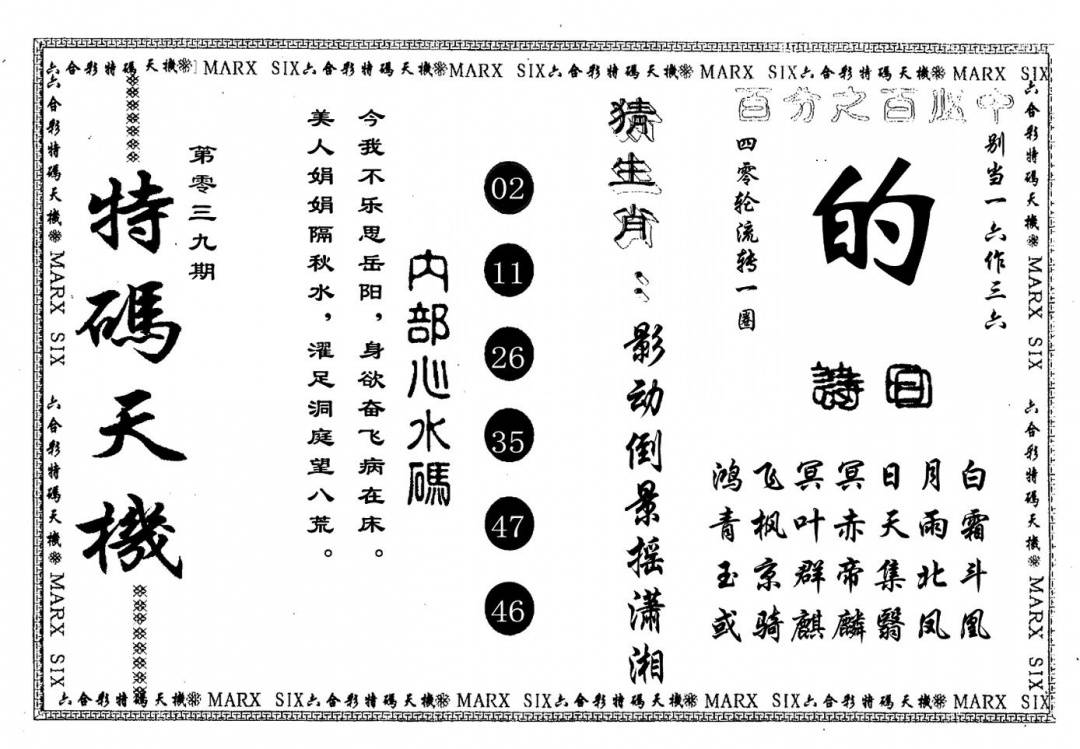 六合彩特碼天機 MARX SIX六合彩特碼天機MARX SIX六合彩特碼天機 MARX SIX六合彩特碼天機 MARX SIX
六合彩特碼天機 MARX SIX 六合彩特碼天機 MARX SIX
特碼天機
第零三九期
今我不乐思岳阳，身欲奋飞病在床。
美人娟娟隔秋水，濯足洞庭望八荒。
内部心水碼
02
11
26
35
47
46
猜生肖：影动倒景摇潇湘
百分之百必中
别当一六作三六
的
四零轮流转一圈
詩曰
鸿飞冥冥日月白
青枫叶赤天雨霜
玉京群帝集北斗
或骑麒麟翳凤凰
六合彩特碼天機 MARX SIX 六合彩特碼天機 MARX SIX
六合彩特碼天機 MARX SIX六合彩特碼天機 MARX SIX六合彩特碼天機 MARX SIX六合彩特碼天機 MARX SIX